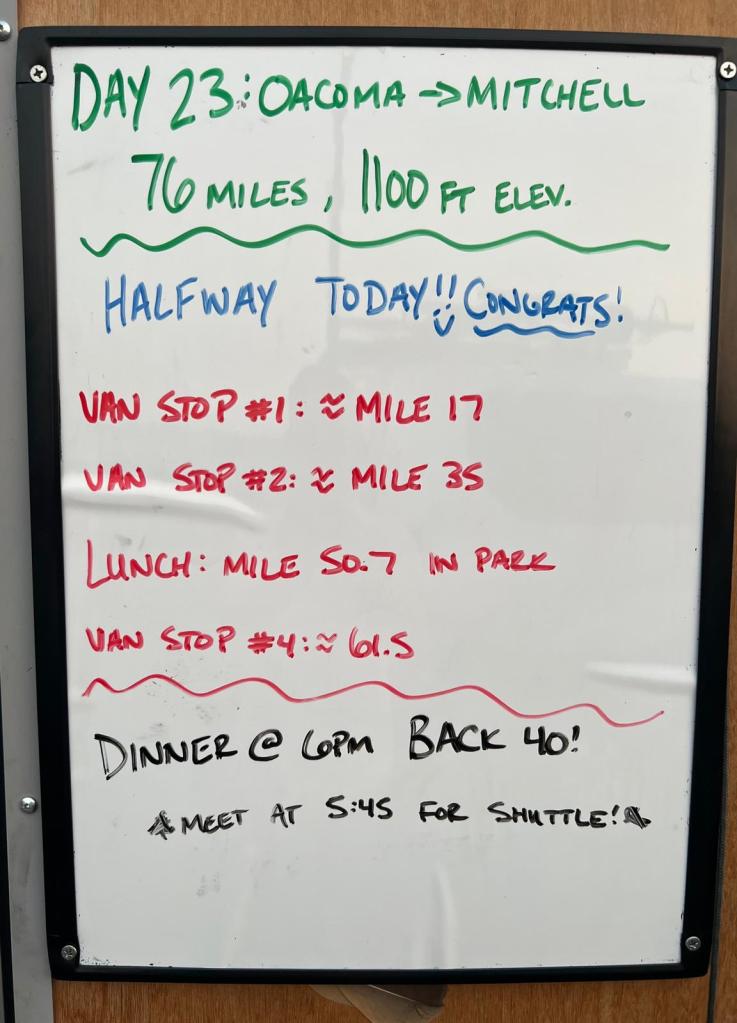 DAY 23: OACOMA -> MITCHELL
76 MILES, 1100 FT ELEV.
HALFWAY TODAY!! CONGRATS!
VAN STOP #1: ≈ MILE 17
VAN STOP #2: ≈ MILE 35
LUNCH: MILE 50.7 IN PARK
VAN STOP #4: ≈ 61.5
DINNER @ 6PM BACK 40!
*MEET AT 5:45 FOR SHUTTLE!*